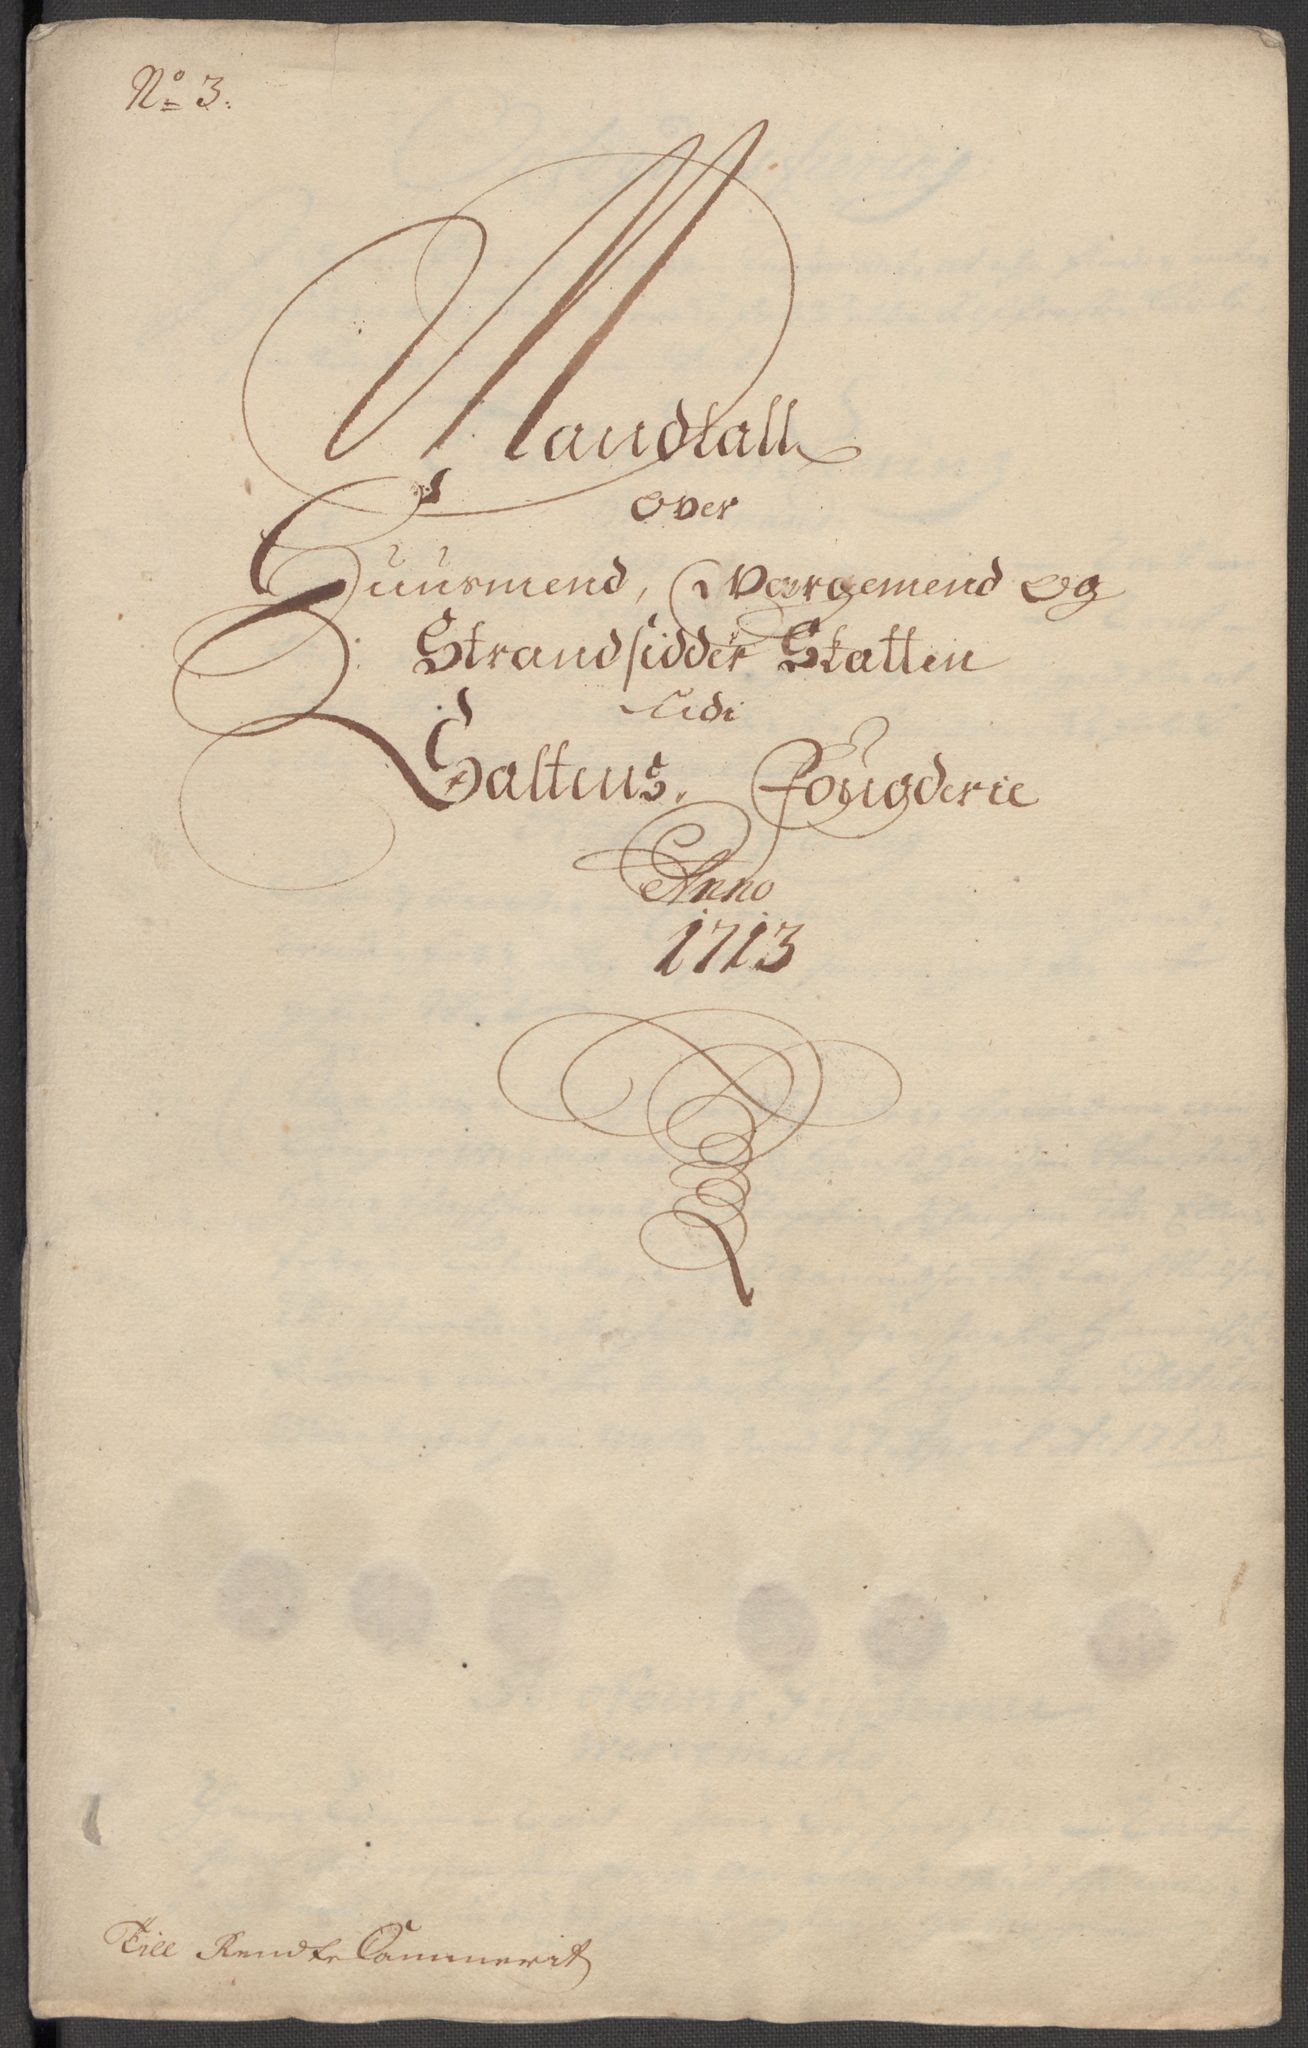 No 3.
Mandtall
over
Huusmend, Qværgemend og
Strandsidder Skatten
udi
Saltens Fougderie
Anno
1713
Till Rendte Cammerit